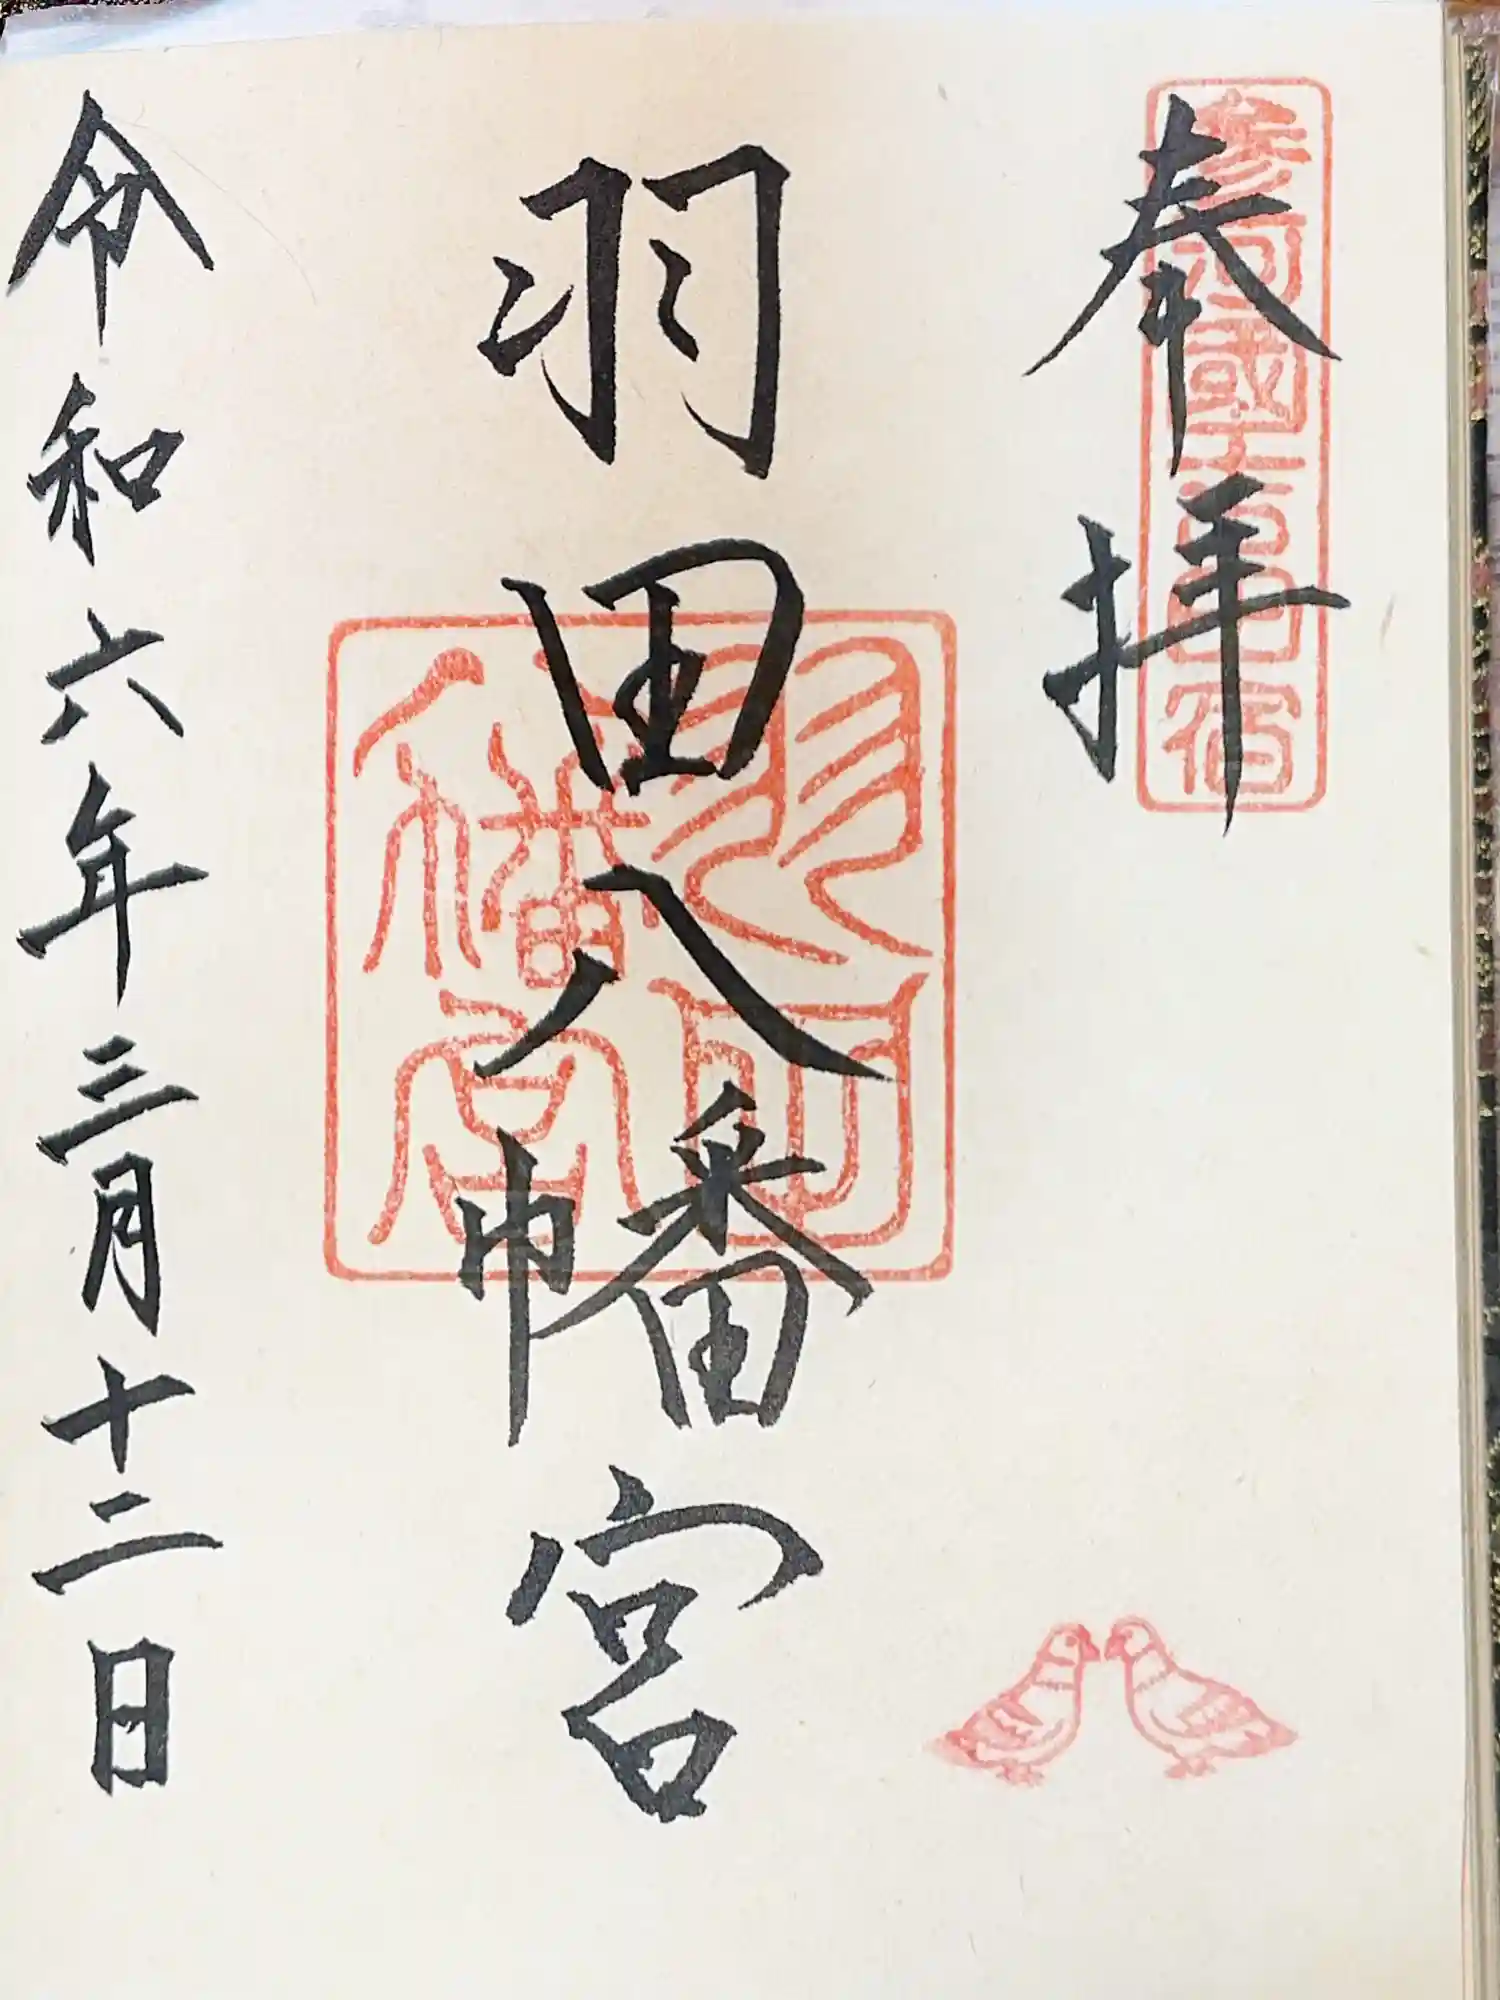 奉拝
参河國吉田宿
羽田八幡宮
羽田八幡宮
令和六年三月十二日